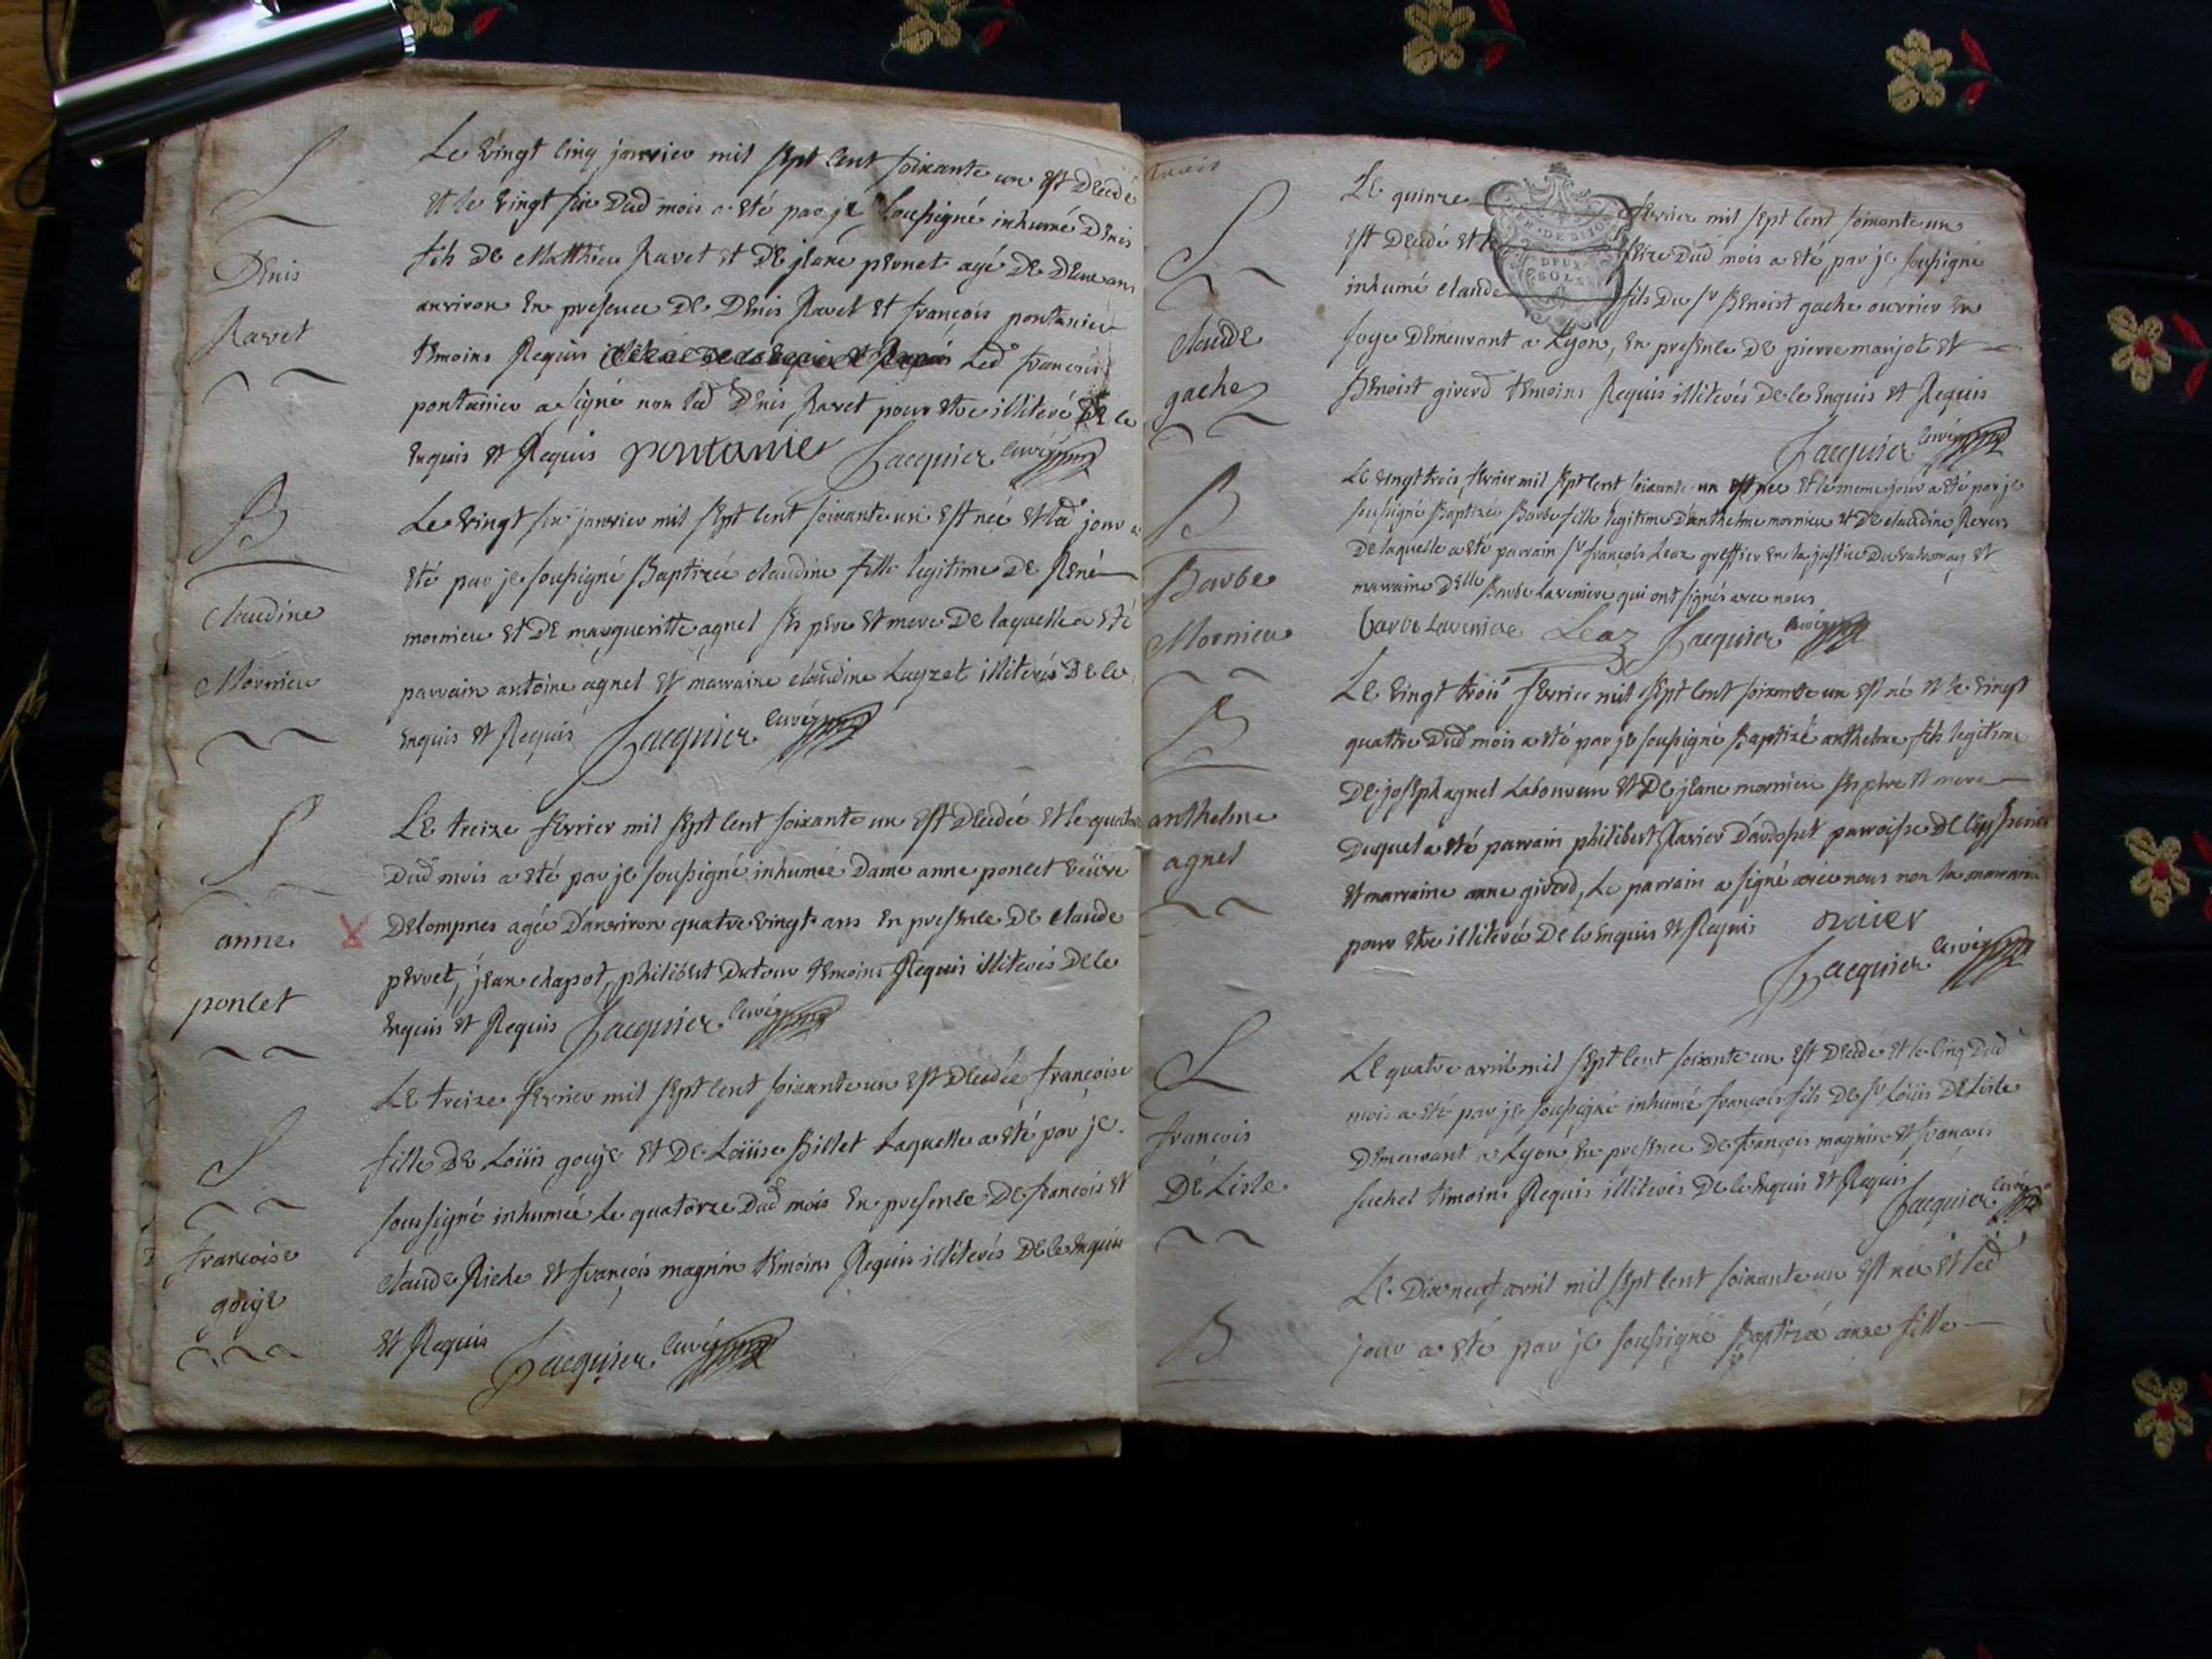 S
Denis
Ravet
Le vingt cinq janvier mil sept cent soixante un est decedé
et le vingt six dud mois a eté par je soussigné inhumé Denis
fils de Matthieu Ravet et de jeane pernet agé de deux ans
anviron en presence de Denis Ravet et françois pontanier
temoins Requis Led françois
pontanier a signé non led Denis Ravet pour etre illiteré de ce
enquis et Requis pontanier Jacquier curé
B
claudine
Mornieu
Le vingt six janvier mil sept cent soixante un est née et led jour a
eté par je soussigné Baptizée claudine fille legitime de René
mornieu et de margueritte agnel ses pere et mere de laquelle a eté
parrain antoine agnel et marraine claudine Luyzet illiterés de ce
enquis et Requis Jacquier curé
S
anne
poncet
Le treize fevrier mil sept cent soixante un est decedée et le quatorze
dud mois a eté par je soussigné inhumée Dame anne poncet veüve
Delompnes agée d'anviron quatre vingt ans en presence de claude
pervet, jean chapot, philibert Dutour temoins Requis illiterés de ce
enquis et Requis Jacquier curé
S
françoise
gouje
Le treize fevrier mil sept cent soixante un est decedée françoise
fille de Loüis gouje et de Loüise Billet Laquelle a eté par je
soussigné inhumée Le quatorze dud mois en presence de françois et
claude Riche et françois magnin temoins Requis illiterés de ce enquis
et Requis Jacquier curé
trois
S
claude
gache
Le quinze fevrier mil sept cent soixante un
est decedé et le seize dud mois a eté par je soussigné
inhumé claude fils du Sr Benoist gache ouvrier en
GEN. DE DIJON
DEUX
SOLS
soye demeurant a Lyon, en presence de pierre manjot et
Benoist giverd temoins Requis illiterés de ce enquis et Requis
Jacquier curé
B
Barbe
Mornieu
Le vingt trois fevrier mil sept cent soixante un est née et le meme jour a eté par je
soussigné Baptizée Barbe fille legitime d'anthelme mornieu et de claudine Revers
de laquelle a eté parrain Sr françois Leaz greffier en la justice du et
marraine Delle Barbe Laverniere qui ont signés avec nous
barbe Laverniere Leaz Jacquier curé
B
anthelme
agnel
Le vingt trois fevrier mil sept cent soixante un est né et le vingt
quattre dud mois a eté par je soussigné Baptizé anthelme fils legitime
de joseph agnel Laboureur et de jeane mornieu ses pere et mere
duquel a eté parrain philibert Ravier d'ardosset parroisse de
et marraine anne giverd, Le parrain a signé avec nous non la marraine
pour etre illiterée de ce enquis et Requis ravier
Jacquier curé
S
françois
De Lisle
Le quatre avril mil sept cent soixante un est decedé et le cinq dud
mois a eté par je soussigné inhumé françois fils de Sr Loüis De Lisle
demeurant a Lyon, en presence de françois magnin et françois
suchet temoins Requis illiterés de ce enquis et Requis
Jacquier curé
B
Le dix neuf avril mil sept cent soixante un est née et led
jour a eté par je soussigné Baptizée anne fille